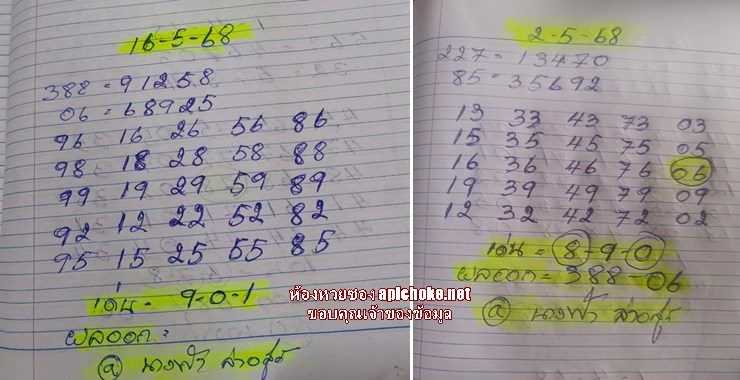 16-5-68
388 = 91258
06 = 68925
96 16 26 56 86
98 18 28 58 88
99 19 29 59 89
92 12 22 52 82
95 15 25 55 85
เด่น - 9-0-1
ผลออก =
@ นางฟ้า
ห้องหวยซอง aplchoke.net
ขอบคุณเจ้าของข้อมูล
2-5-68
227 = 13470
85 = 35692
13 33 43 73 03
15 35 45 75 05
16 36 46 76 06
19 39 49 79 09
12 32 42 72 02
เด่น = 8-9-0
ผลออก = 388-06
@ นางฟ้า